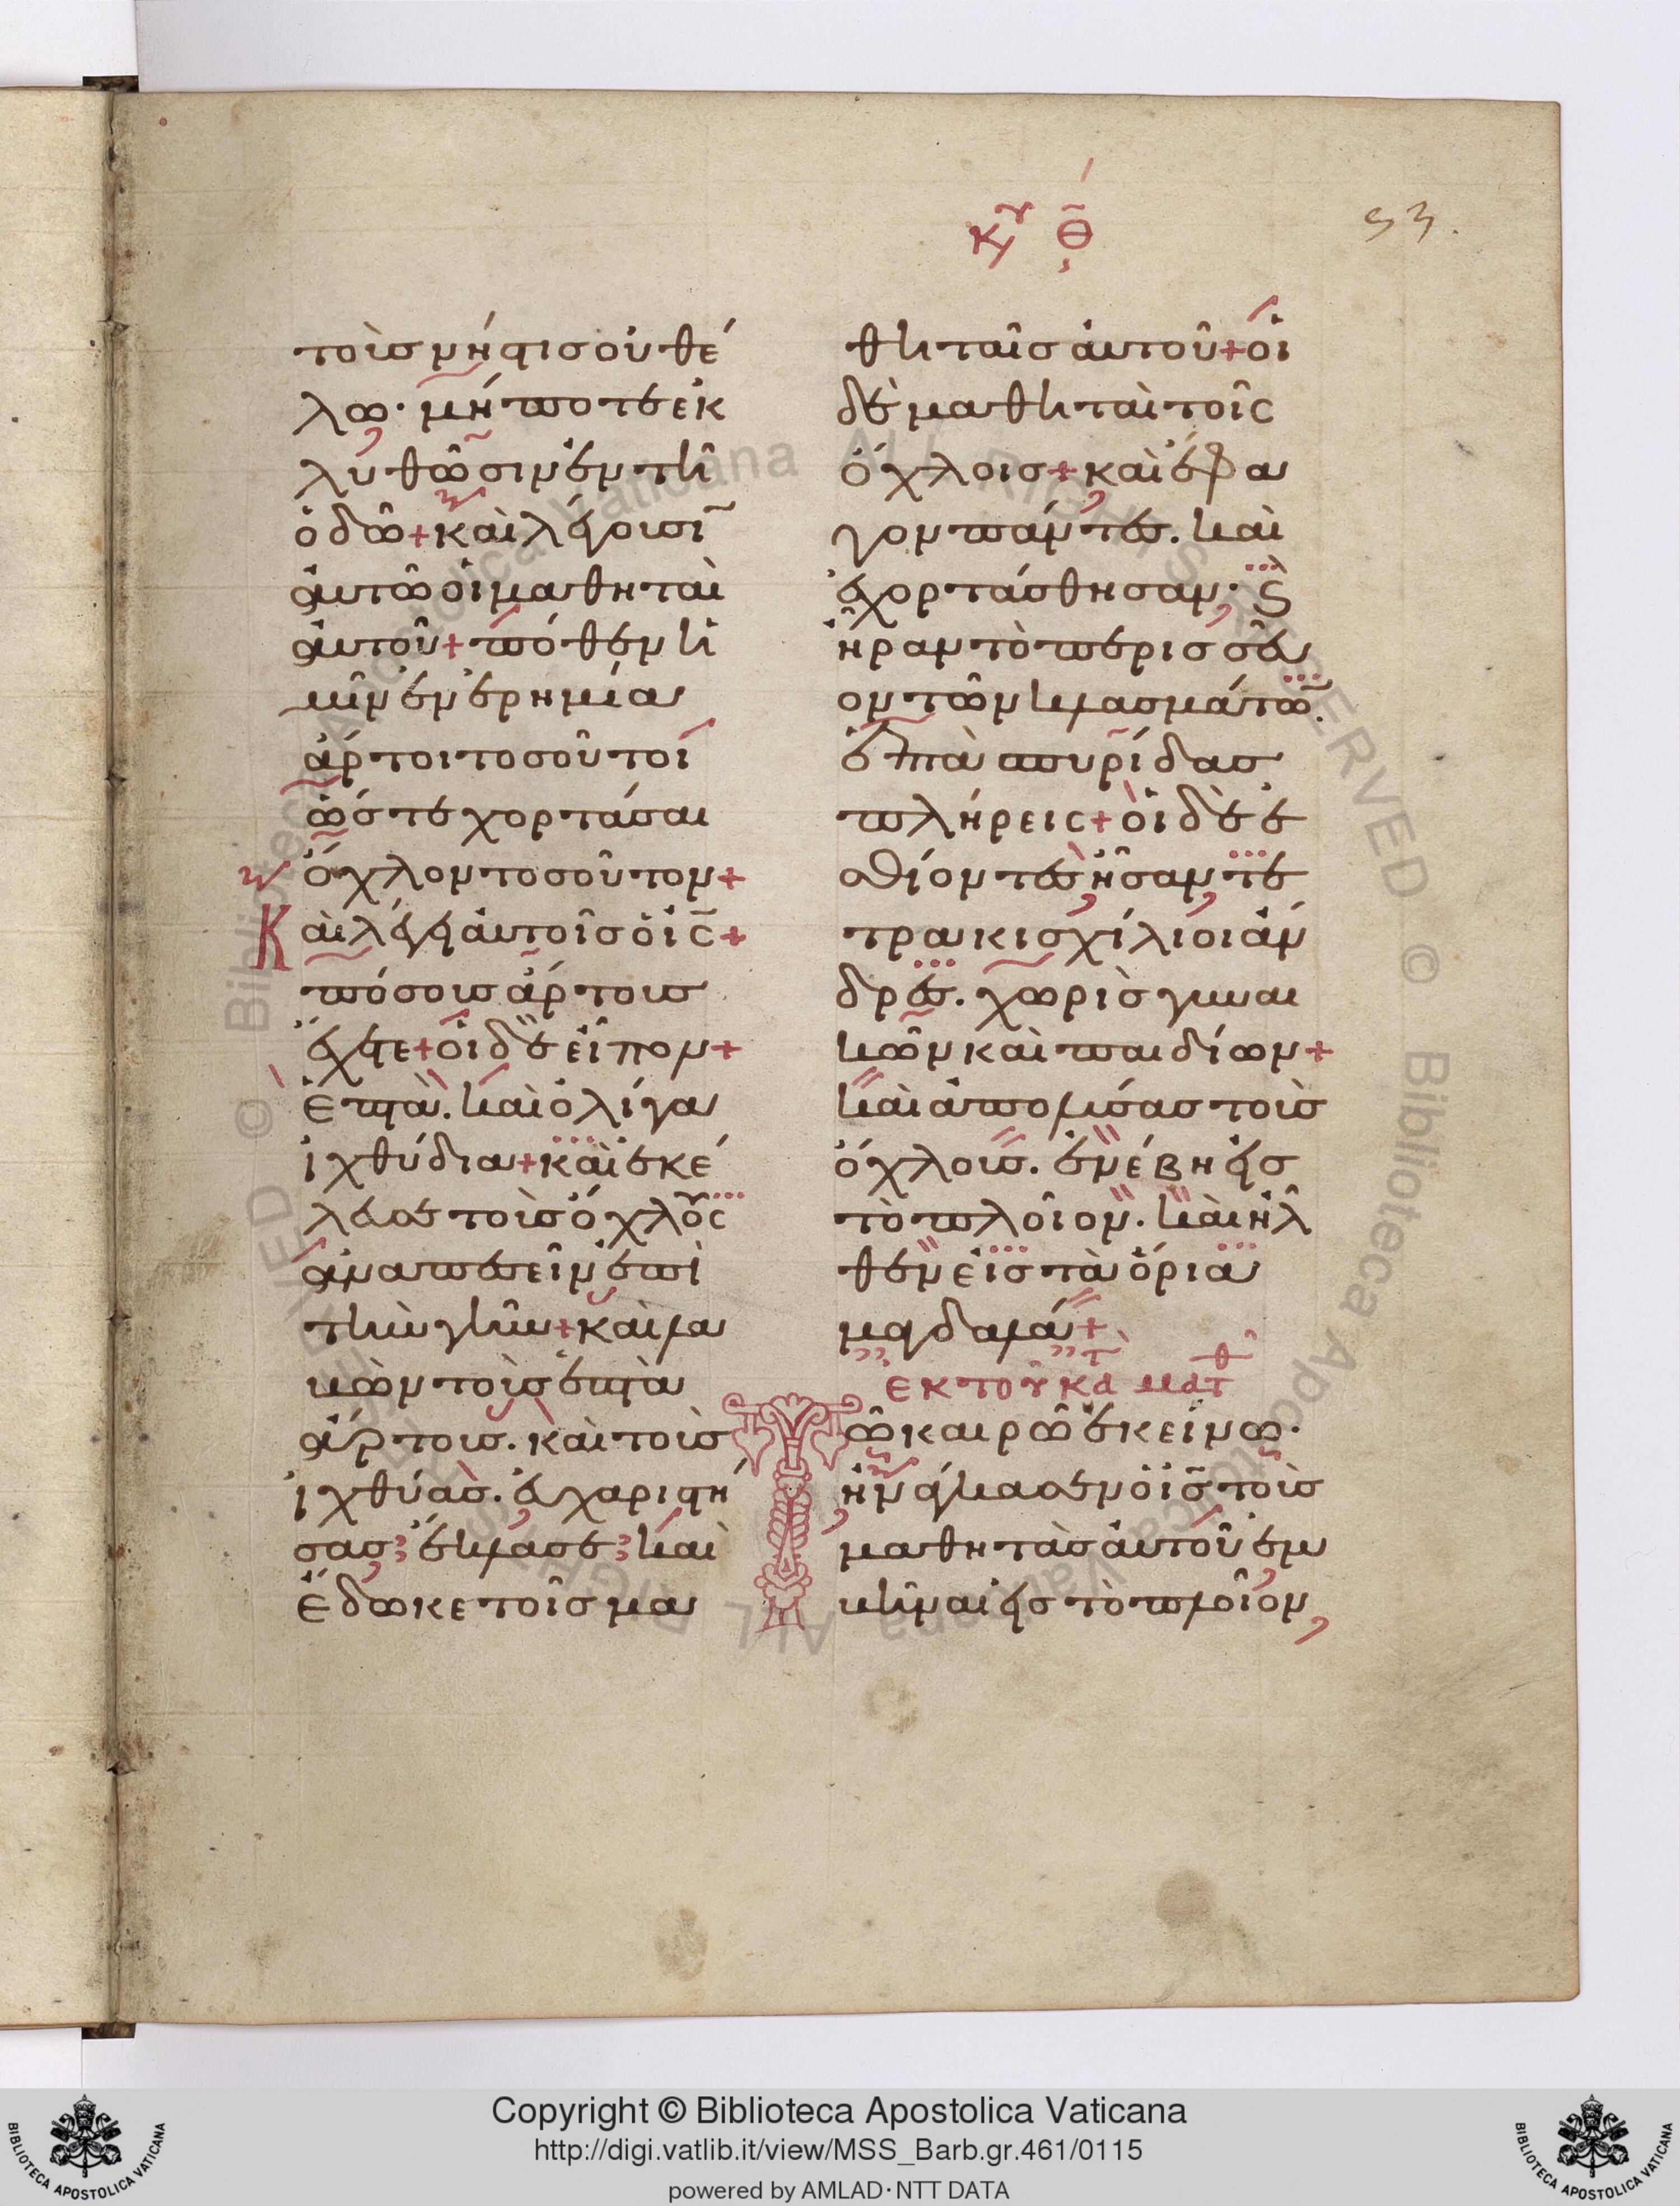 κυ θ
53.
τοὺσ νήστισ οὐ θέ
λω· μήποτε ἐκ
λυθῶσιν ἐν τῆ
ὁδῶ + καὶ λέγουσῖ
αὐτῶ οἱ μαθηταὶ
αὐτοῦ + πόθεν ἡ
μῖν ἐν ἐρημία
ἄρτοι τοσοῦτοι
ὥστε χορτάσαι
ὄχλον τοσοῦτον +
Καὶ λέγει αὐτοῖσ ὁ ις +
πόσουσ ἄρτουσ
ἔχετε + οἱ δὲ εἶπον +
ἑπτὰ. καὶ ὀλίγα
ἰχθύδια + καὶ ἐκέ
λευσε τοῖσ ὄχλοις
ἀναπεσεῖν ἐπὶ
τὴν γῆν + καὶ λα
βὼν τοὺσ ἑπτὰ
ἄρτουσ. καὶ τοὺσ
ἰχθύασ. εὐχαριστή
σασ ἔκλασε καὶ
ἔδωκε τοῖσ μα
θηταῖσ αὐτοῦ + οἱ
δὲ μαθηταὶ τοῖς
ὄχλοισ + καὶ ἔφα
γον πάντεσ. καὶ
ἐχορτάσθησαν· Ϗ
ἦραν τὸ περισσεῦ
ον τῶν κλασμάτω̄.
ἑπτὰ σπυρίδασ
πλήρεις + οἱ δὲ ἐ
σθίοντεσ ἦσαν τε
τρακισχίλιοι ἄν
δρεσ. χωρὶσ γυναι
κῶν καὶ παιδίων +
καὶ ἀπολύσασ τοὺσ
ὄχλουσ. ἐνέβη εἰσ
τὸ πλοῖον. καὶ ἦλ
θεν εἰσ τὰ ὅρια
μαγδαλά +
ἐκ τοῦ κατὰ ματθ
Τῶ καιρῶ ἐκείνω·
ἠνάγκασεν ὁ ις τοὺσ
μαθητὰσ αὐτοῦ ἐμ
βῆναι εἰσ τὸ πλοῖον,
Copyright © Biblioteca Apostolica Vaticana
http://digi.vatlib.it/view/MSS_Barb.gr.461/0115
powered by AMLAD·NTT DATA